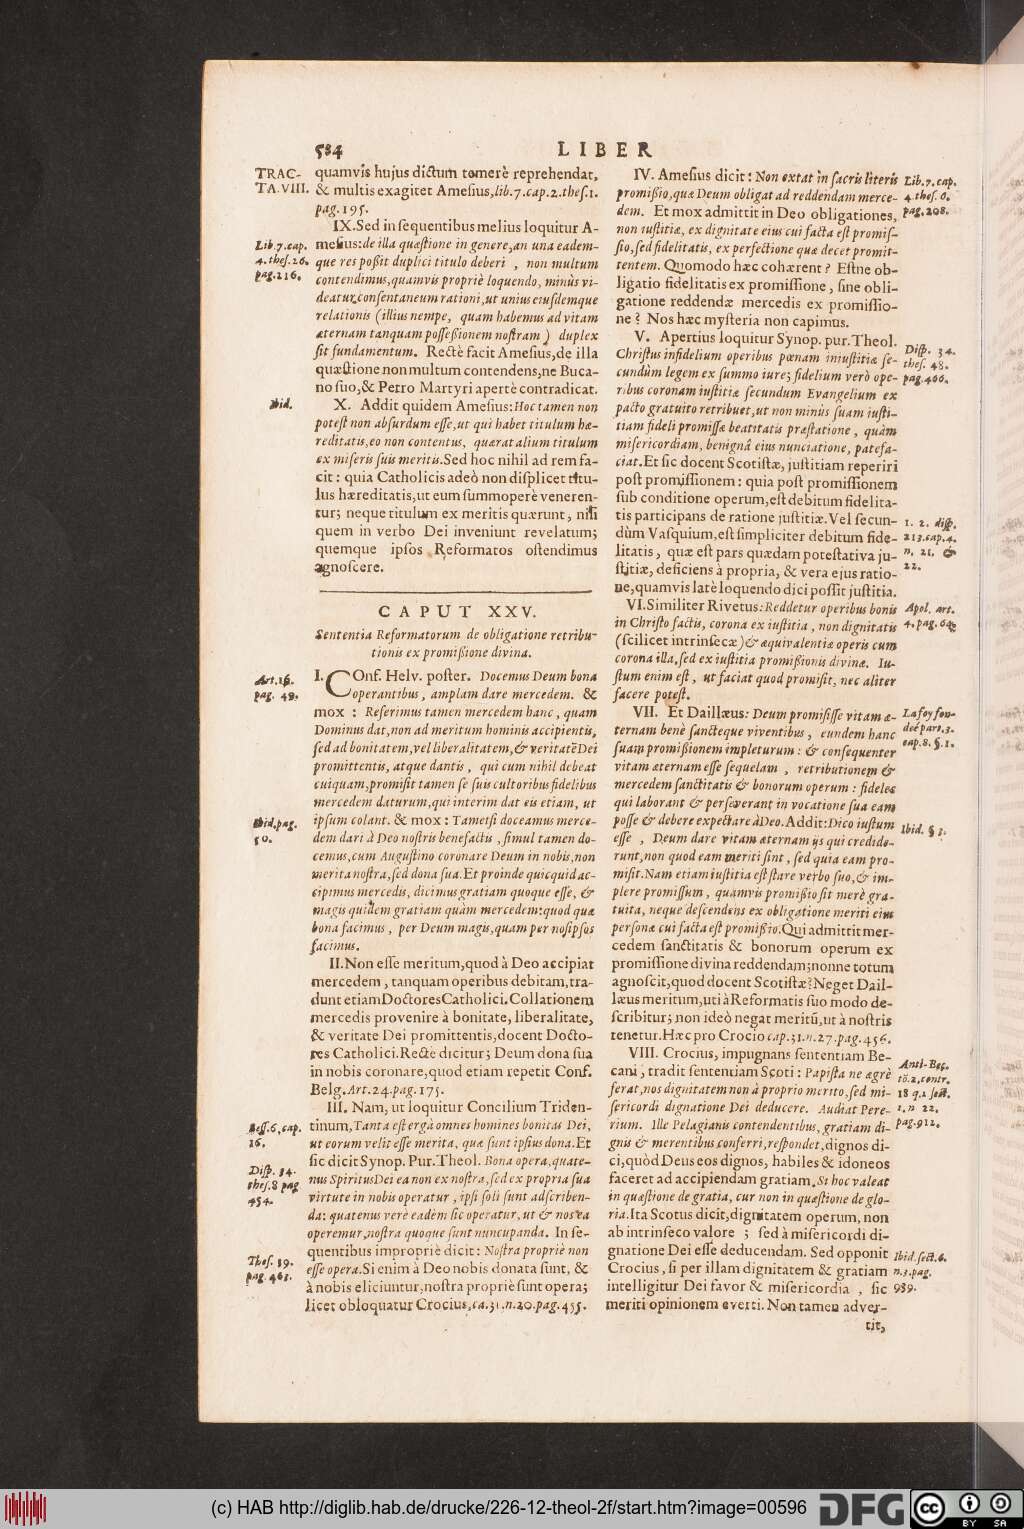 584
LIBER
TRAC-
TA.VIII.
quamvis hujus dictum temerè reprehendat,
& multis exagitet Amesius, lib.7.cap.2.thes.1.
pag.195.
IX. Sed in sequentibus melius loquitur A-
Lib.7.cap.
4.thes.26.
pag.216.
mesius: de illa quæstione in genere, an una eadem-
que res poßit duplici titulo deberi, non multum
contendimus, quamvis propriè loquendo, minùs vi-
deatur consentaneum rationi, ut unius eiusdemque
relationis (illius nempe, quam habemus ad vitam
æternam tanquam possessionem nostram) duplex
sit fundamentum. Rectè facit Amesius, de illa
quæstione non multum contendens, ne Buca-
no suo, & Petro Martyri apertè contradicat.
Ibid.
X. Addit quidem Amesius: Hoc tamen non
potest non absurdum esse, ut qui habet titulum hæ-
reditatis, eo non contentus, quærat alium titulum
ex miseris suis meritis. Sed hoc nihil ad rem fa-
cit: quia Catholicis adeò non displicet titu-
lus hæreditatis, ut eum summoperè veneren-
tur; neque titulum ex meritis quærunt, nisi
quem in verbo Dei inveniunt revelatum;
quemque ipsos Reformatos ostendimus
agnoscere.
CAPUT XXV.
Sententia Reformatorum de obligatione retribu-
tionis ex promißione divina.
Art.16.
pag. 49.
I. COnf. Helv. poster. Docemus Deum bona
operantibus, amplam dare mercedem. &
mox: Referimus tamen mercedem hanc, quam
Dominus dat, non ad meritum hominis accipientis,
sed ad bonitatem, vel liberalitatem, & veritatē Dei
promittentis, atque dantis, qui cum nihil debeat
cuiquam, promisit tamen se suis cultoribus fidelibus
mercedem daturum, qui interim dat eis etiam, ut
Ibid.pag.
50.
ipsum colant. & mox: Tametsi doceamus merce-
dem dari à Deo nostris benefactis, simul tamen do-
cemus, cum Augustino coronare Deum in nobis, non
merita nostra, sed dona sua. Et proinde quicquid ac-
cipimus mercedis, dicimus gratiam quoque esse, &
magis quidem gratiam quàm mercedem: quod quæ
bona facimus, per Deum magis, quam per nosipsos
facimus.
II. Non esse meritum, quod à Deo accipiat
mercedem, tanquam operibus debitam, tra-
dunt etiam Doctores Catholici. Collationem
mercedis provenire à bonitate, liberalitate,
& veritate Dei promittentis, docent Docto-
res Catholici. Rectè dicitur; Deum dona sua
in nobis coronare, quod etiam repetit Conf.
Belg. Art.24.pag.175.
III. Nam, ut loquitur Concilium Triden-
Sess.6.cap.
16.
tinum, Tanta est ergà omnes homines bonitas Dei,
ut eorum velit esse merita, quæ sunt ipsius dona. Et
Disp. 34.
thes.8 pag
454.
sic dicit Synop. Pur. Theol. Bona opera, quate-
nus Spiritus Dei ea non ex nostra, sed ex propria sua
virtute in nobis operatur, ipsi soli sunt adscriben-
da: quatenus verè eadem sic operatur, ut & nos ea
operemur, nostra quoque sunt nuncupanda. In se-
Thes. 39.
pag. 463.
quentibus impropriè dicit: Nostra propriè non
esse opera. Si enim à Deo nobis donata sunt, &
à nobis eliciuntur, nostra propriè sunt opera;
licet obloquatur Crocius, ca.31.n.20.pag.455.
IV. Amesius dicit: Non extat in sacris literis
Lib.7.cap.
4.thes.6.
pag.208.
promißio, quæ Deum obligat ad reddendam merce-
dem. Et mox admittit in Deo obligationes,
non iustitiæ, ex dignitate eius cui facta est promis-
sio, sed fidelitatis, ex perfectione quæ decet promit-
tentem. Quomodo hæc cohærent? Estne ob-
ligatio fidelitatis ex promissione, sine obli-
gatione reddendæ mercedis ex promissio-
ne? Nos hæc mysteria non capimus.
V. Apertius loquitur Synop. pur. Theol.
Disp. 34.
thes. 48.
pag.466.
Christus infidelium operibus pœnam iniustitiæ se-
cundùm legem ex summo iure; fidelium verò ope-
ribus coronam iustitiæ secundum Evangelium ex
pacto gratuito retribuet, ut non minùs suam iusti-
tiam fideli promissæ beatitatis præstatione, quàm
misericordiam, benignâ eius nunciatione, patefa-
ciat. Et sic docent Scotistæ, justitiam reperiri
post promissionem: quia post promissionem
sub conditione operum, est debitum fidelita-
tis participans de ratione justitiæ. Vel secun-
1. 2. disp.
213.cap.4.
n. 21. &
22.
dùm Vasquium, est simpliciter debitum fide-
litatis, quæ est pars quædam potestativa ju-
stitiæ, deficiens à propria, & vera ejus ratio-
ne, quamvis latè loquendo dici possit justitia.
VI. Similiter Rivetus: Reddetur operibus bonis
Apol. art.
4. pag. 64.
in Christo factis, corona ex iustitia, non dignitatis
(scilicet intrinsecæ) & æquivalentiæ operis cum
corona illa, sed ex iustitia promißionis divinæ. Iu-
stum enim est, ut faciat quod promisit, nec aliter
facere potest.
VII. Et Dallæus: Deum promisisse vitam æ-
La foy fon-
deé part.3.
cap.8. §.1.
ternam benè sancteque viventibus, eundem hanc
suam promißionem impleturum: & consequenter
vitam æternam esse sequelam, retributionem &
mercedem sanctitatis & bonorum operum: fideles
qui laborant & perseverant in vocatione sua eam
posse & debere expectare à Deo. Addit: Dico iustum
Ibid. § 3.
esse, Deum dare vitam æternam ijs qui credide-
runt, non quod eam meriti sint, sed quia eam pro-
misit. Nam etiam iustitia est stare verbo suo, & im-
plere promissum, quamvis promißio sit merè gra-
tuita, neque descendens ex obligatione meriti eius
personæ cui facta est promißio. Qui admittit mer-
cedem sanctitatis & bonorum operum ex
promissione divina reddendam; nonne totum
agnoscit, quod docent Scotistæ? Neget Dail-
læus meritum, uti à Reformatis suo modo de-
scribitur; non ideò negat meritū, ut à nostris
tenetur. Hæc pro Crocio cap.31.n.27.pag.456.
VIII. Crocius, impugnans sententiam Be-
Anti-Bec.
tō.2.contr.
18 q.1 sect.
1. n 22.
pag.912.
cani, tradit sententiam Scoti: Papista ne ægrè
ferat, nos dignitatem non à proprio merito, sed mi-
sericordi dignatione Dei deducere. Audiat Pere-
rium. Ille Pelagianis contendentibus, gratiam di-
gnis & merentibus conferri, respondet, dignos di-
ci, quòd Deus eos dignos, habiles & idoneos
faceret ad accipiendam gratiam. Si hoc valeat
in quæstione de gratia, cur non in quæstione de glo-
ria. Ita Scotus dicit, dignitatem operum, non
ab intrinseco valore; sed à misericordi di-
gnatione Dei esse deducendam. Sed opponit
Ibid.sect.6.
n.3.pag.
989.
Crocius, si per illam dignitatem & gratiam
intelligitur Dei favor & misericordia, sic
meriti opinionem everti. Non tamen adver-
tit,
(c) HAB http://diglib.hab.de/drucke/226-12-theol-2f/start.htm?image=00596
DFG
cc BY SA